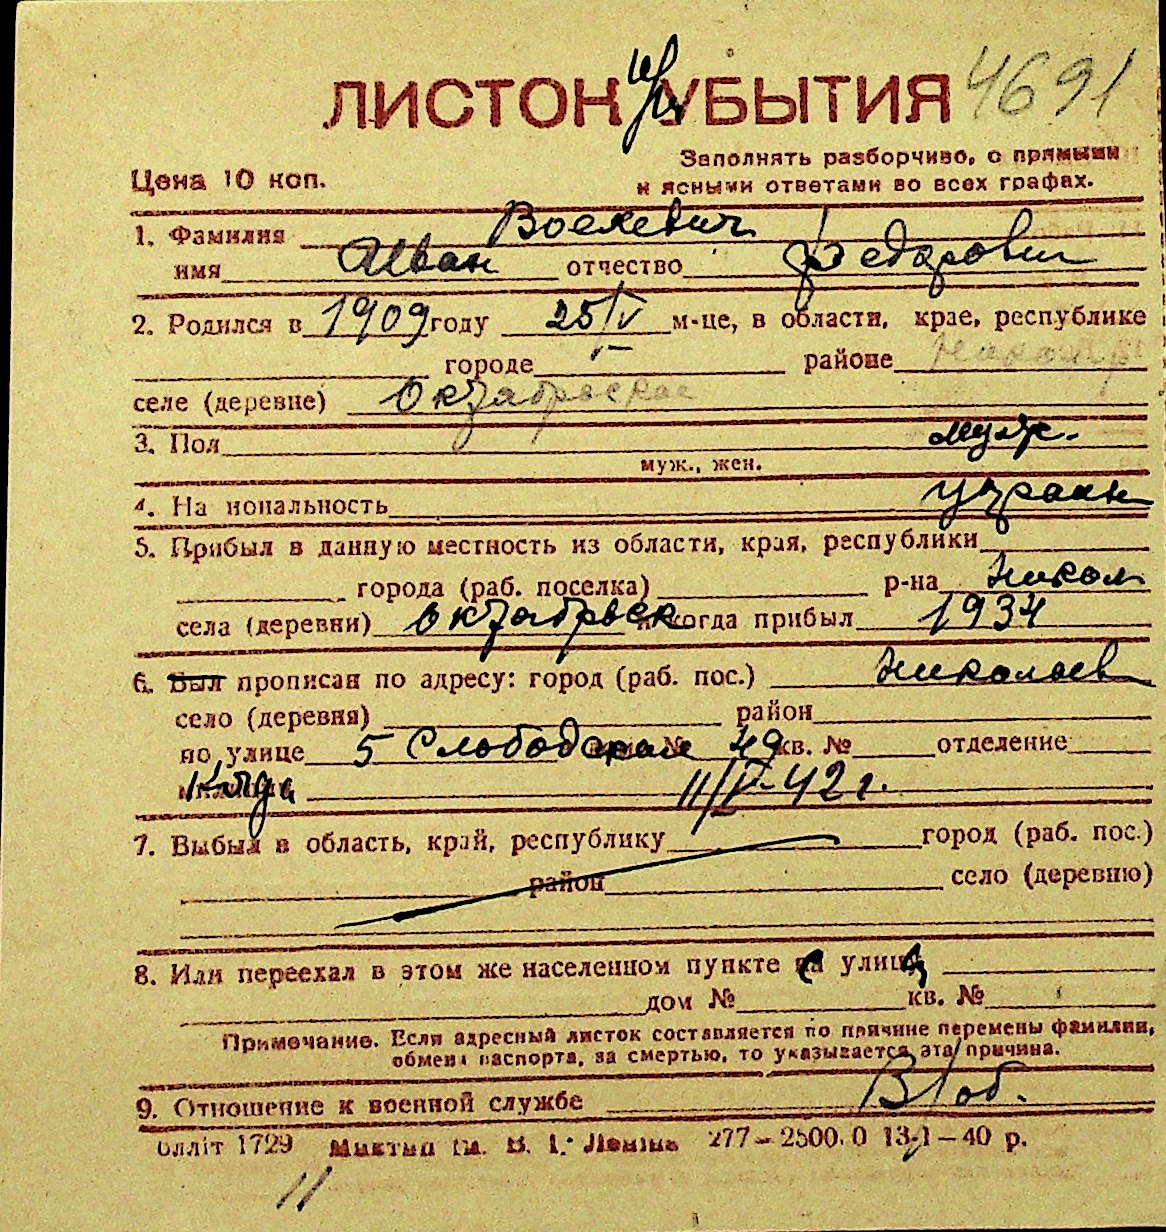 ЛИСТОК УБЫТИЯ 4691
при
Заполнять разборчиво, с прямыми
Цена 10 коп. и ясными ответами во всех графах.
1. Фамилия Воскевич
имя Иван отчество Федорович
2. Родился в 1909 году 25/IV м-це, в области, крае, республике
городе — районе
селе (деревне) Октябрьское
3. Пол муж.
муж., жен.
4. На иональность украин
5. Прибыл в данную местность из области, края, республики
города (раб. поселка) р-на Никол
села (деревни) Октябрьск и когда прибыл 1934
6. Был прописан по адресу: город (раб. пос.) Николаев
село (деревня) район
по улице 5 Слободская 49 кв. № отделение
11/V-42 г.
7. Выбыл в область, край, республику город (раб. пос.)
район село (деревню)
8. Или переехал в этом же населенном пункте с улицы
дом № кв. №
Примечание. Если адресный листок составляется по причине перемены фамилии,
обмена паспорта, за смертью, то указывается эта причина.
9. Отношение к военной службе В/об.
Олліт 1729 Миктип ім. В. І. Леніна 277—2500.0 13-I—40 р.
11